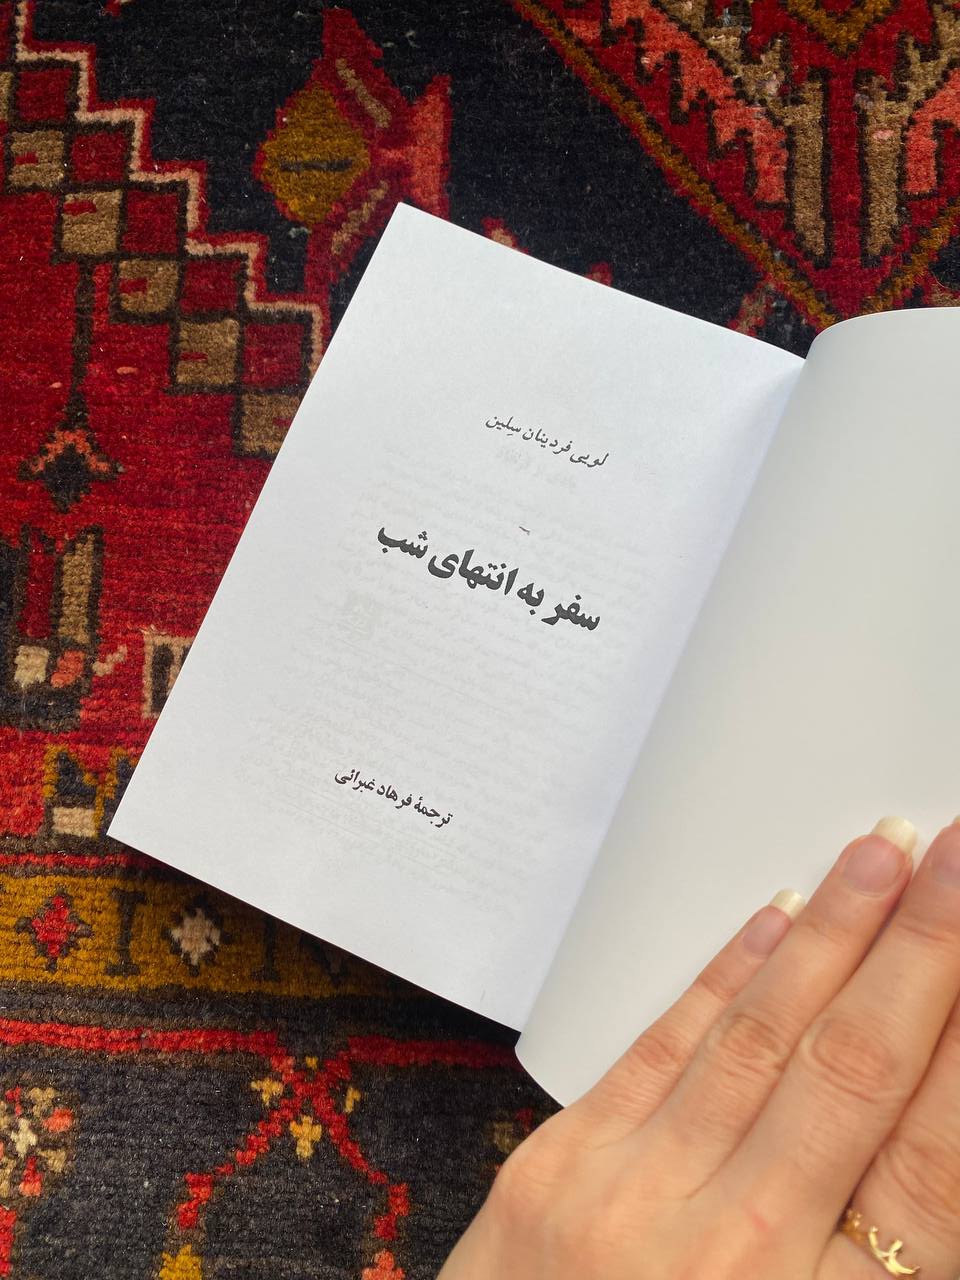 لویی فردینان سِلین
سفر به انتهای شب
ترجمهٔ فرهاد غبرائی